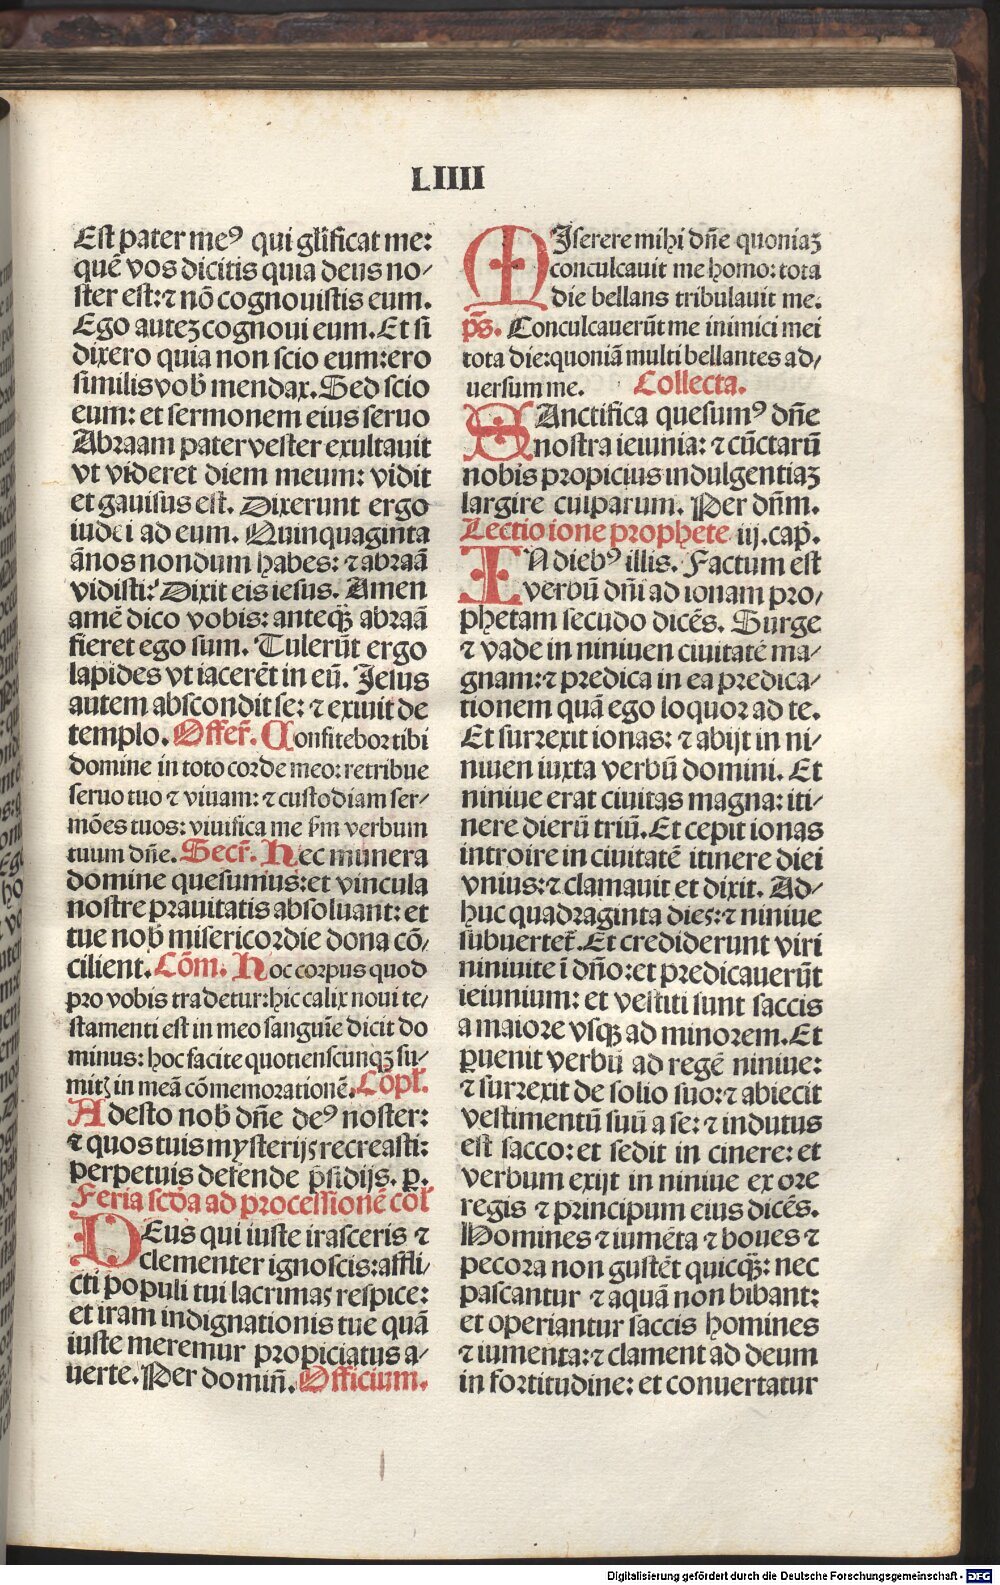 LIIII
Est pater me⁹ qui gl̄ificat me:
quē vos dicitis quia deus no⸗
ster est: ⁊ nō cognouistis eum.
Ego auteꝫ cognoui eum. Et si
dixero quia non scio eum: ero
similis vob̄ mendax. Sed scio
eum: et sermonem eius seruo
Abraam pater vester exultauit
vt videret diem meum: vidit
et gauisus est. Dixerunt ergo
iudei ad eum. Quinquaginta
ānos nondum habes: ⁊ abraā
vidisti: Dixit eis iesus. Amen
amē dico vobis: anteqꝫ abraā
fieret ego sum. Tulerūt ergo
lapides vt iacerēt in eū. Jesus
autem abscondit se: ⁊ exiuit de
templo. Offer̄. Confitebor tibi
domine in toto corde meo: retribue
seruo tuo ⁊ viuam: ⁊ custodiam ser⸗
mōes tuos: viuifica me s̄m verbum
tuum dn̄e. Secr̄. Hec munera
domine quesumus: et vincula
nostre prauitatis absoluant: et
tue nob̄ misericordie dona cō⸗
cilient. Cōm. Hoc corpus quod
pro vobis tradetur: hic calix noui te⸗
stamenti est in meo sanguīe dicit do
minus: hoc facite quotienscūnqꝫ su⸗
mitꝭ in meā cōmemorationē. Cōpl̄.
Adesto nob̄ dn̄e de⁹ noster:
⁊ quos tuis mysterijs recreasti:
perpetuis defende p̄sidijs. ꝑ.
Feria scd̄a ad processionē col̄
DEus qui iuste irasceris ⁊
clementer ignoscis: affli⸗
cti populi tui lacrimas respice:
et iram indignationis tue quā
iuste meremur propiciatus a⸗
uerte. Per domin̄. Officium.
MIserere mihi dn̄e quoniaꝫ
conculcauit me homo: tota
die bellans tribulauit me.
p̄s. Conculcauerūt me inimici mei
tota die: quoniā multi bellantes ad⸗
uersum me. Collecta.
SAnctifica quesum⁹ dn̄e
nostra ieiunia: ⁊ cūctarū
nobis propicius indulgentiaꝫ
largire culparum. Per dn̄m.
Lectio ione prophete iij. cap̄.
IN dieb⁹ illis. Factum est
verbū dn̄i ad ionam pro⸗
phetam secudo dicēs. Surge
⁊ vade in niniuen ciuitatē ma⸗
gnam: ⁊ predica in ea predica⸗
tionem quā ego loquor ad te.
Et surrexit ionas: ⁊ abijt in ni⸗
niuen iuxta verbū domini. Et
niniue erat ciuitas magna: iti⸗
nere dierū triū. Et cepit ionas
introire in ciuitatē itinere diei
vnius: ⁊ clamauit et dixit. Ad⸗
huc quadraginta dies: ⁊ niniue
subuertet̄. Et crediderunt viri
niniuite ī dn̄o: et predicauerūt
ieiunium: et vestiti sunt saccis
a maiore vsqꝫ ad minorem. Et
ꝑuenit verbū ad regē niniue:
⁊ surrexit de solio suo: ⁊ abiecit
vestimentū suū a se: ⁊ indutus
est sacco: et sedit in cinere: et
verbum exijt in niniue ex ore
regis ⁊ principum eius dicēs.
Homines ⁊ iumēta ⁊ boues ⁊
pecora non gustēt quicqꝫ: nec
pascantur ⁊ aquā non bibant:
et operiantur saccis homines
⁊ iumenta: ⁊ clament ad deum
in fortitudine: et conuertatur
Digitalisierung gefördert durch die Deutsche Forschungsgemeinschaft - DFG